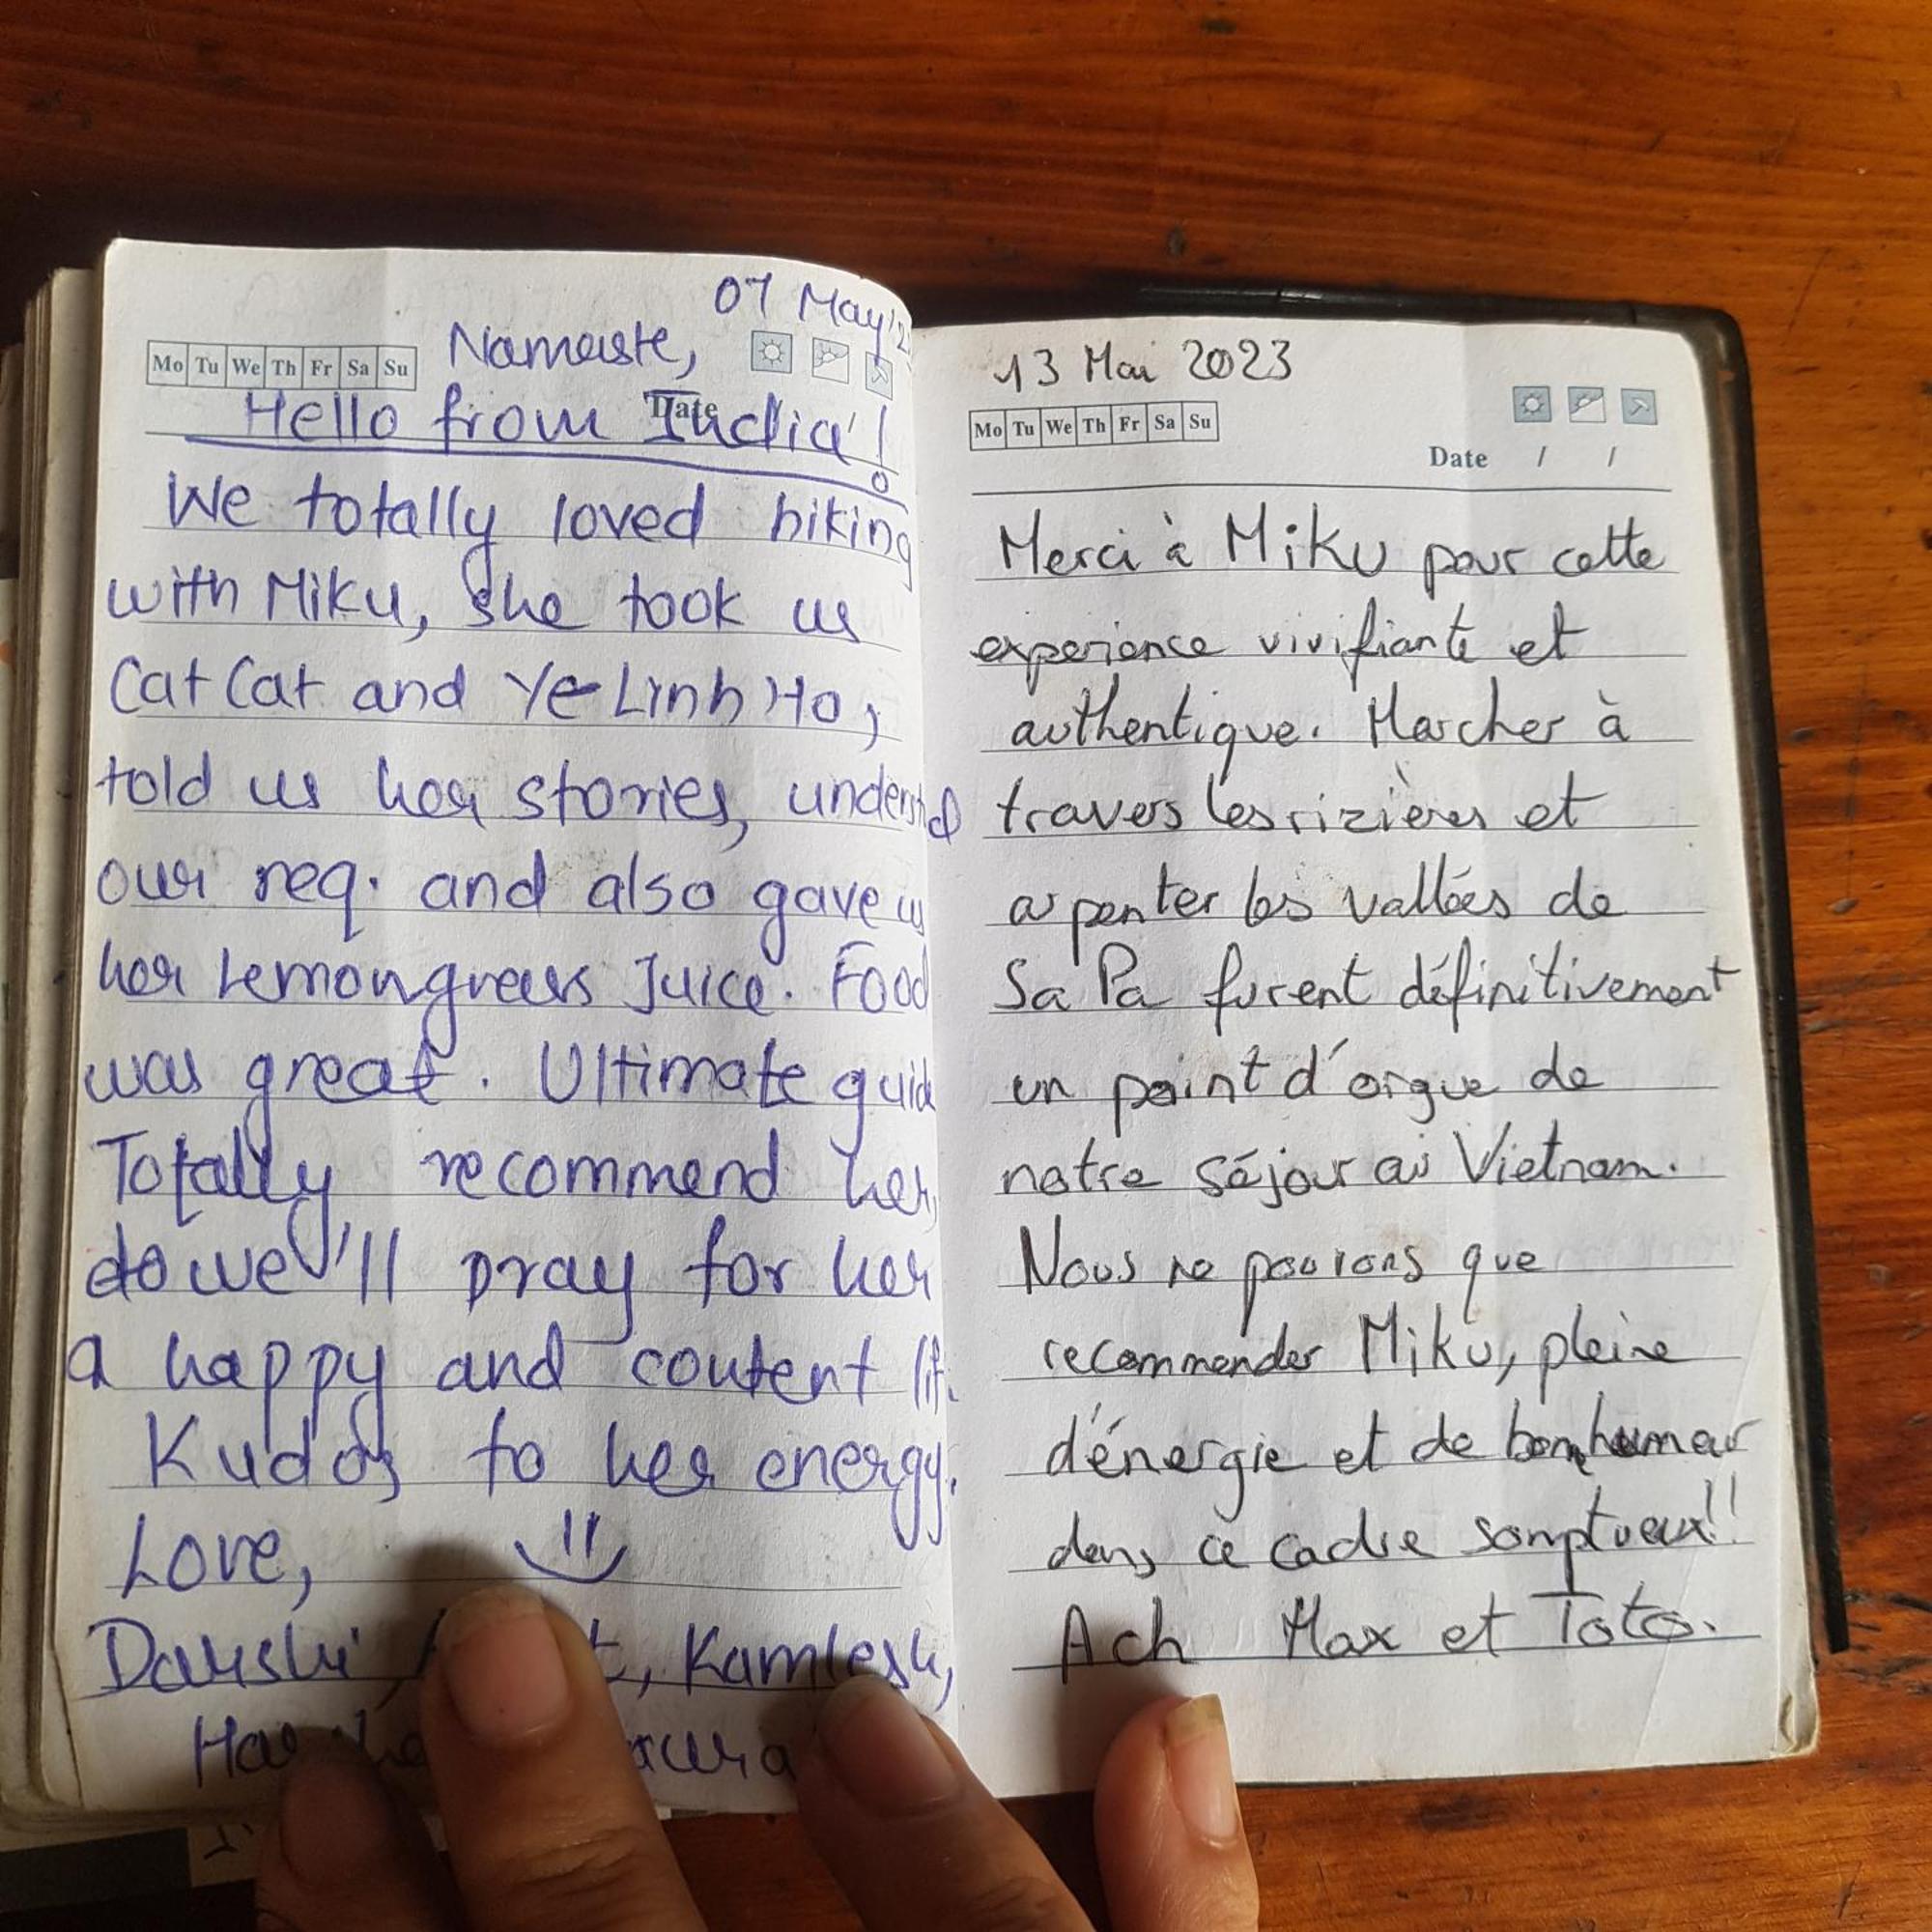 07 May'2
Mo Tu We Th Fr Sa Su
Namaste,
Date
Hello from India!
We totally loved hiking
with Miku, she took us
Cat Cat and Ye Linh Ho,
told us her stories,
our req. and also gave us
her Lemongrass Juice. Food
was great. Ultimate guid
Totally recommend her,
do we'll pray for her
a happy and content
Kudos to her energy.
Love,
Kamlesh,
13 Mai 2023
Mo Tu We Th Fr Sa Su
Date / /
Merci à Miku pour cette
experience vivifiante et
authentique. Marcher à
travers les rizières et
arpenter les vallées de
Sa Pa furent définitivement
un point d'orgue de
notre séjour au Vietnam.
Nous ne pouvons que
recommender Miku, pleine
d'énergie et de bonhumeur
dans ce cadre somptueux!!
Ach Max et Toto.